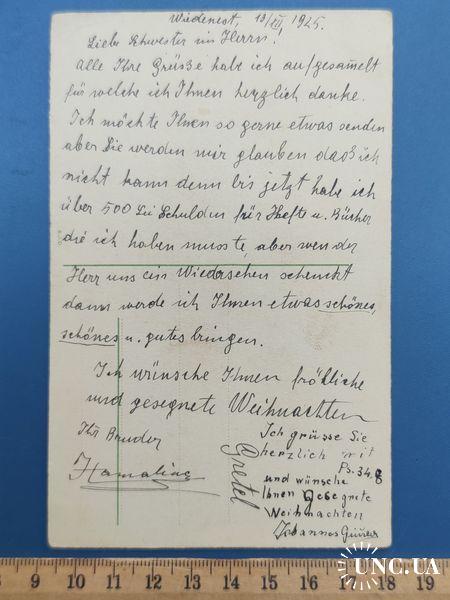 Wiedenest, 13/XII, 1925.
Liebe Schwester im Herrn!
Alle Ihre Grüsse habe ich aufgesam̄elt
für welche ich Ihnen herzlich danke.
Ich möchte Ihnen so gerne etwas senden
aber Sie werden mir glauben daß ich
nicht kann denn bis jetzt habe ich
über 500 Lei Schulden für Hefte u. Bücher
die ich haben musste, aber wen der
Herr uns ein Wiedersehen schenckt
dann werde ich Ihnen etwas schönes,
schönes u. gutes bringen.
Ich wünsche Ihnen fröhliche
und gesegnete Weihnachten
Ihr Bruder
Gretel
Ich grüsse Sie
herzlich mit
Ps. 34.8
und wünsche
Ihnen Gesegnete
Weihnachten
Johannes
7 8 9 10 11 12 13 14 15 16 17 18 19
UNC.UA